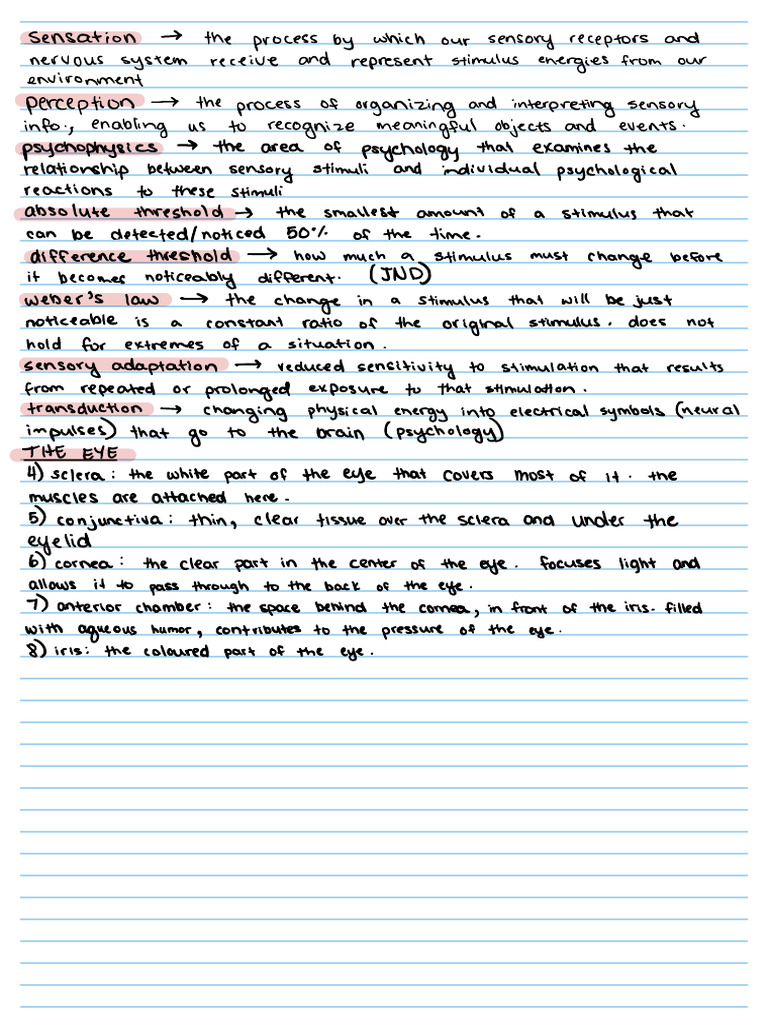 sensation → the process by which our sensory receptors and
nervous system receive and represent stimulus energies from our
environment
perception → the process of organizing and interpreting sensory
info., enabling us to recognize meaningful objects and events.
psychophysics → the area of psychology that examines the
relationship between sensory stimuli and individual psychological
reactions to these stimuli
absolute threshold → the smallest amount of a stimulus that
can be detected/noticed 50% of the time.
difference threshold → how much a stimulus must change before
it becomes noticeably different. (JND)
weber's law → the change in a stimulus that will be just
noticeable is a constant ratio of the original stimulus. does not
hold for extremes of a situation.
sensory adaptation → reduced sensitivity to stimulation that results
from repeated or prolonged exposure to that stimulation.
transduction → changing physical energy into electrical symbols (neural
impulses) that go to the brain (psychology)
THE EYE
4) sclera: the white part of the eye that covers most of it. the
muscles are attached here.
5) conjunctiva: thin, clear tissue over the sclera and under the
eyelid
6) cornea: the clear part in the center of the eye. focuses light and
allows it to pass through to the back of the eye.
7) anterior chamber: the space behind the cornea, in front of the iris. filled
with aqueous humor, contributes to the pressure of the eye.
8) iris: the coloured part of the eye.